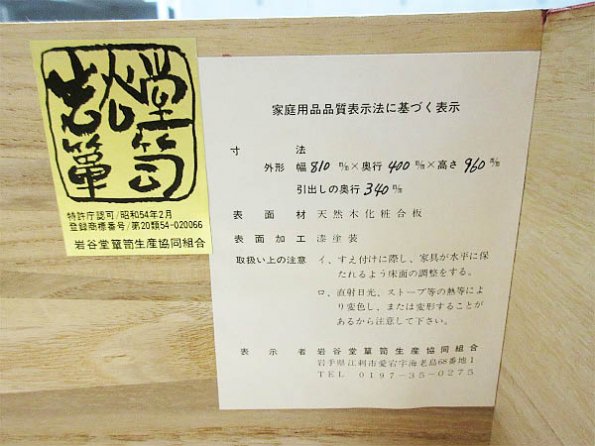 岩谷堂
箪笥
特許庁認可/昭和54年2月
登録商標番号/第20類54-020066
岩谷堂箪笥生産協同組合
家庭用品品質表示法に基づく表示
寸法
外形 幅 810 m/m×奥行 400 m/m×高さ 960 m/m
引出しの奥行 340 m/m
表面材 天然木化粧合板
表面加工 漆塗装
取扱い上の注意 イ、すえ付けに際し、家具が水平に保
たれるよう床面の調整をする。
ロ、直射日光、ストーブ等の熱等によ
り変色し、または変形することが
あるから注意して下さい。
表示者 岩谷堂箪笥生産協同組合
岩手県江刺市愛宕字海老島68番地1
TEL 0197-35-0275